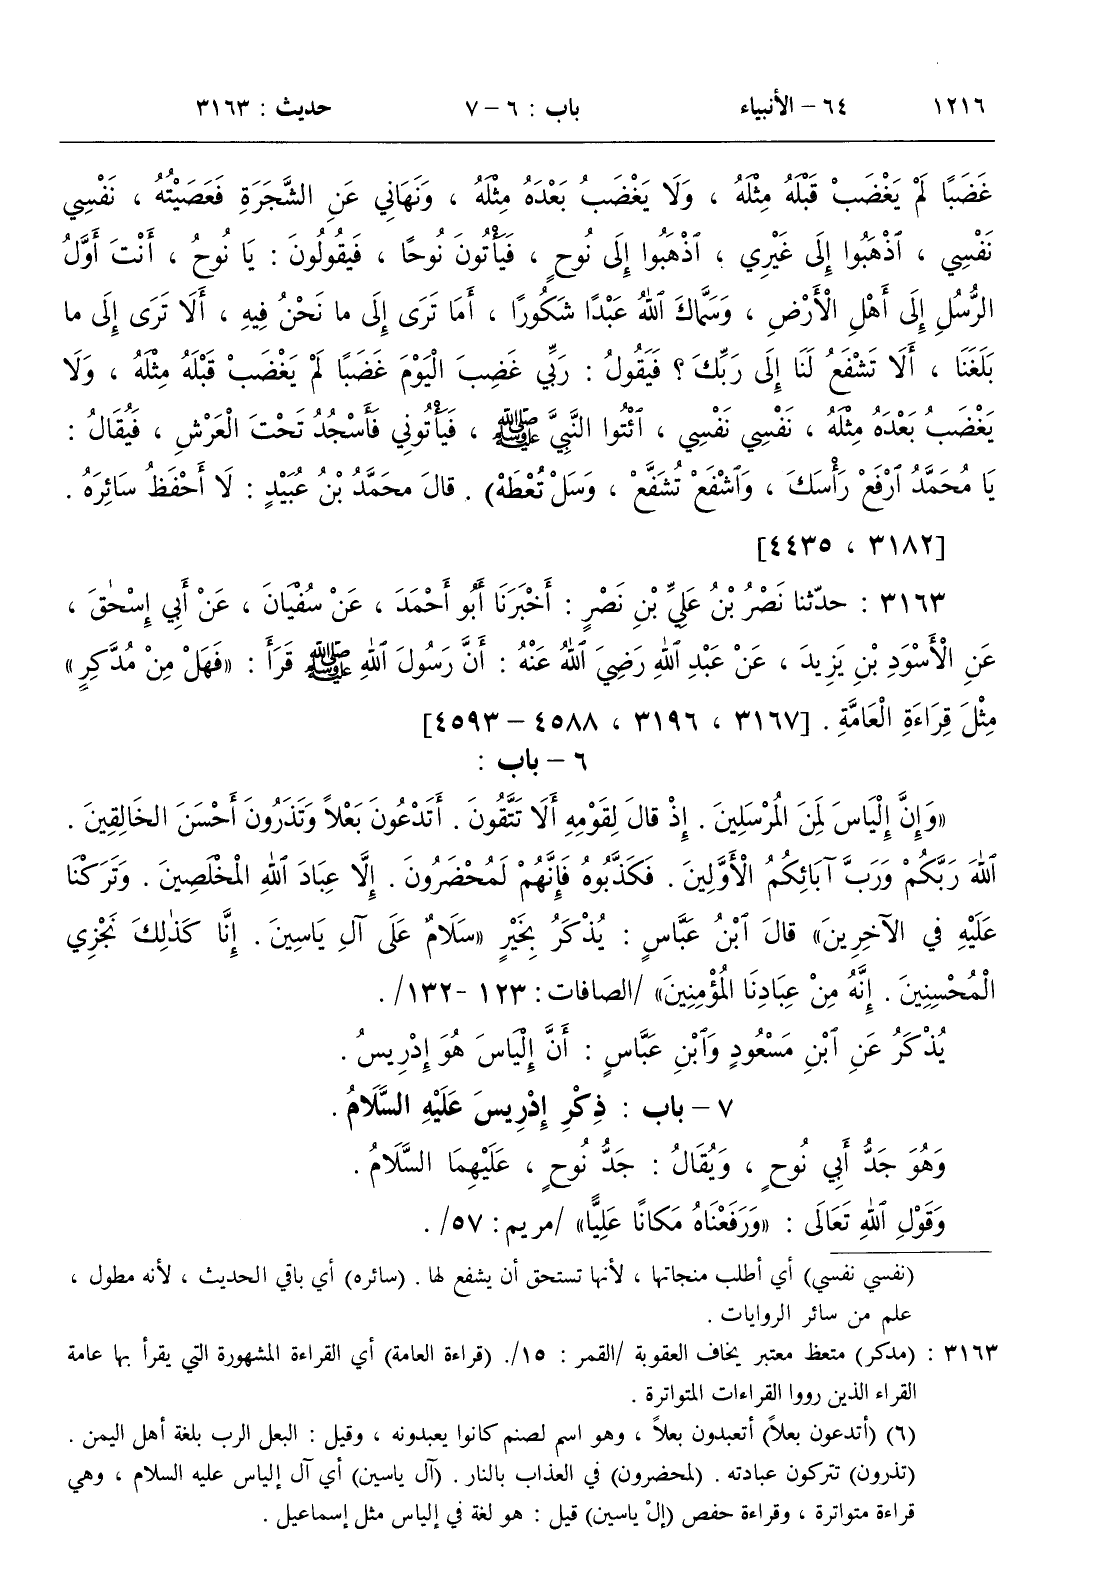 ١٢١٦ ٦٤ - الأنبياء باب : ٦ - ٧ حديث : ٣١٦٣
غَضَبًا لَمْ يَغْضَبْ قَبْلَهُ مِثْلَهُ ، وَلَا يَغْضَبُ بَعْدَهُ مِثْلَهُ ، وَنَهَانِي عَنِ الشَّجَرَةِ فَعَصَيْتُهُ ، نَفْسِي
نَفْسِي ، ٱذْهَبُوا إِلَى غَيْرِي ، ٱذْهَبُوا إِلَى نُوحٍ ، فَيَأْتُونَ نُوحًا ، فَيَقُولُونَ : يَا نُوحُ ، أَنْتَ أَوَّلُ
الرُّسُلِ إِلَى أَهْلِ الْأَرْضِ ، وَسَمَّاكَ ٱللهُ عَبْدًا شَكُورًا ، أَمَا تَرَى إِلَى ما نَحْنُ فِيهِ ، أَلَا تَرَى إِلَى ما
بَلَغَنَا ، أَلَا تَشْفَعُ لَنَا إِلَى رَبِّكَ ؟ فَيَقُولُ : رَبِّي غَضِبَ الْيَوْمَ غَضَبًا لَمْ يَغْضَبْ قَبْلَهُ مِثْلَهُ ، وَلَا
يَغْضَبُ بَعْدَهُ مِثْلَهُ ، نَفْسِي نَفْسِي ، ٱئْتُوا النَّبِيَّ ﷺ ، فَيَأْتُونِي فَأَسْجُدُ تَحْتَ الْعَرْشِ ، فَيُقَالُ :
يَا مُحَمَّدُ ٱرْفَعْ رَأْسَكَ ، وَٱشْفَعْ تُشَفَّعْ ، وَسَلْ تُعْطَهْ) . قالَ محَمَّدُ بْنُ عُبَيْدٍ : لَا أَحْفَظُ سَائِرَهُ .
[٣١٨٢ ، ٤٤٣٥]
٣١٦٣ : حدّثنا نَصْرُ بْنُ عَلِيِّ بْنِ نَصْرٍ : أَخْبَرَنَا أَبُو أَحْمَدَ ، عَنْ سُفْيَانَ ، عَنْ أَبِي إِسْحٰقَ ،
عَنِ الْأَسْوَدِ بْنِ يَزِيدَ ، عَنْ عَبْدِ ٱللهِ رَضِيَ ٱللهُ عَنْهُ : أَنَّ رَسُولَ ٱللهِ ﷺ قَرَأَ : «فَهَلْ مِنْ مُدَّكِرٍ»
مِثْلَ قِرَاءَةِ الْعَامَّةِ . [٣١٦٧ ، ٣١٩٦ ، ٤٥٨٨ – ٤٥٩٣]
٦ – باب :
«وَإِنَّ إِلْيَاسَ لَمِنَ الْمُرْسَلِينَ . إِذْ قالَ لِقَوْمِهِ أَلَا تَتَّقُونَ . أَتَدْعُونَ بَعْلاً وَتَذَرُونَ أَحْسَنَ الخَالِقِينَ .
ٱللهَ رَبَّكُمْ وَرَبَّ آبَائِكُمُ الْأَوَّلِينَ . فَكَذَّبُوهُ فَإِنَّهُمْ لَمُحْضَرُونَ . إِلَّا عِبَادَ ٱللهِ الْمُخْلَصِينَ . وَتَرَكْنَا
عَلَيْهِ فِي الآخِرِينَ» قالَ ٱبْنُ عَبَّاسٍ : يُذْكَرُ بِخَيْرٍ «سَلَامٌ عَلَى آلِ يَاسِينَ . إِنَّا كَذٰلِكَ نَجْزِي
الْمُحْسِنِينَ . إِنَّهُ مِنْ عِبَادِنَا الْمُؤْمِنِينَ» /الصافات : ١٢٣ -١٣٢/ .
يُذْكَرُ عَنِ ٱبْنِ مَسْعُودٍ وَٱبْنِ عَبَّاسٍ : أَنَّ إِلْيَاسَ هُوَ إِدْرِيسُ .
٧ – باب : ذِكْرِ إِدْرِيسَ عَلَيْهِ السَّلَامُ .
وَهُوَ جَدُّ أَبِي نُوحٍ ، وَيُقَالُ : جَدُّ نُوحٍ ، عَلَيْهِمَا السَّلَامُ .
وَقَوْلِ ٱللهِ تَعَالَى : «وَرَفَعْنَاهُ مَكانًا عَلِيًّا» /مريم : ٥٧/ .
(نفسي نفسي) أي أطلب منجاتها ، لأنها تستحق أن يشفع لها . (سائره) أي باقي الحديث ، لأنه مطول ،
علم من سائر الروايات .
٣١٦٣ : (مدكر) متعظ معتبر يخاف العقوبة /القمر : ١٥/. (قراءة العامة) أي القراءة المشهورة التي يقرأ بها عامة
القراء الذين رووا القراءات المتواترة .
(٦) (أتدعون بعلاً) أتعبدون بعلاً ، وهو اسم لصنم كانوا يعبدونه ، وقيل : البعل الرب بلغة أهل اليمن .
(تذرون) تتركون عبادته . (لمحضرون) في العذاب بالنار . (آل ياسين) أي آل إلياس عليه السلام ، وهي
قراءة متواترة ، وقراءة حفص (إلْ ياسين) قيل : هو لغة في إلياس مثل إسماعيل .